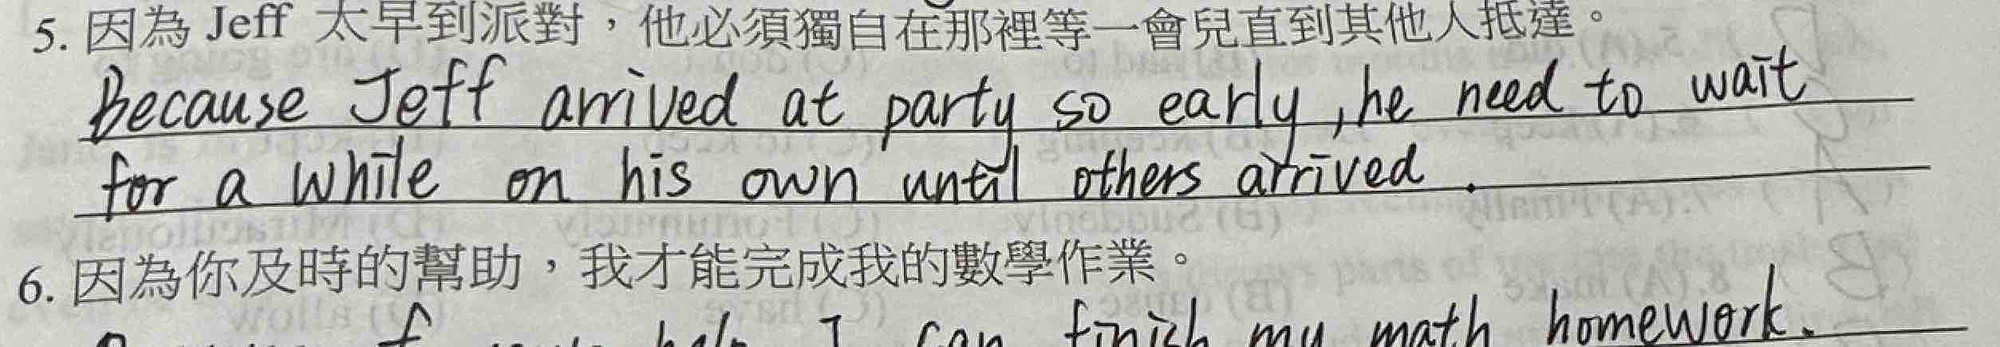 5. 因為 Jeff 太早到派對，他必須獨自在那裡等一會兒直到其他人抵達。
Because Jeff arrived at party so early, he need to wait
for a while on his own until others arrived.
6. 因為你及時的幫助，我才能完成我的數學作業。
I can finish my math homework.